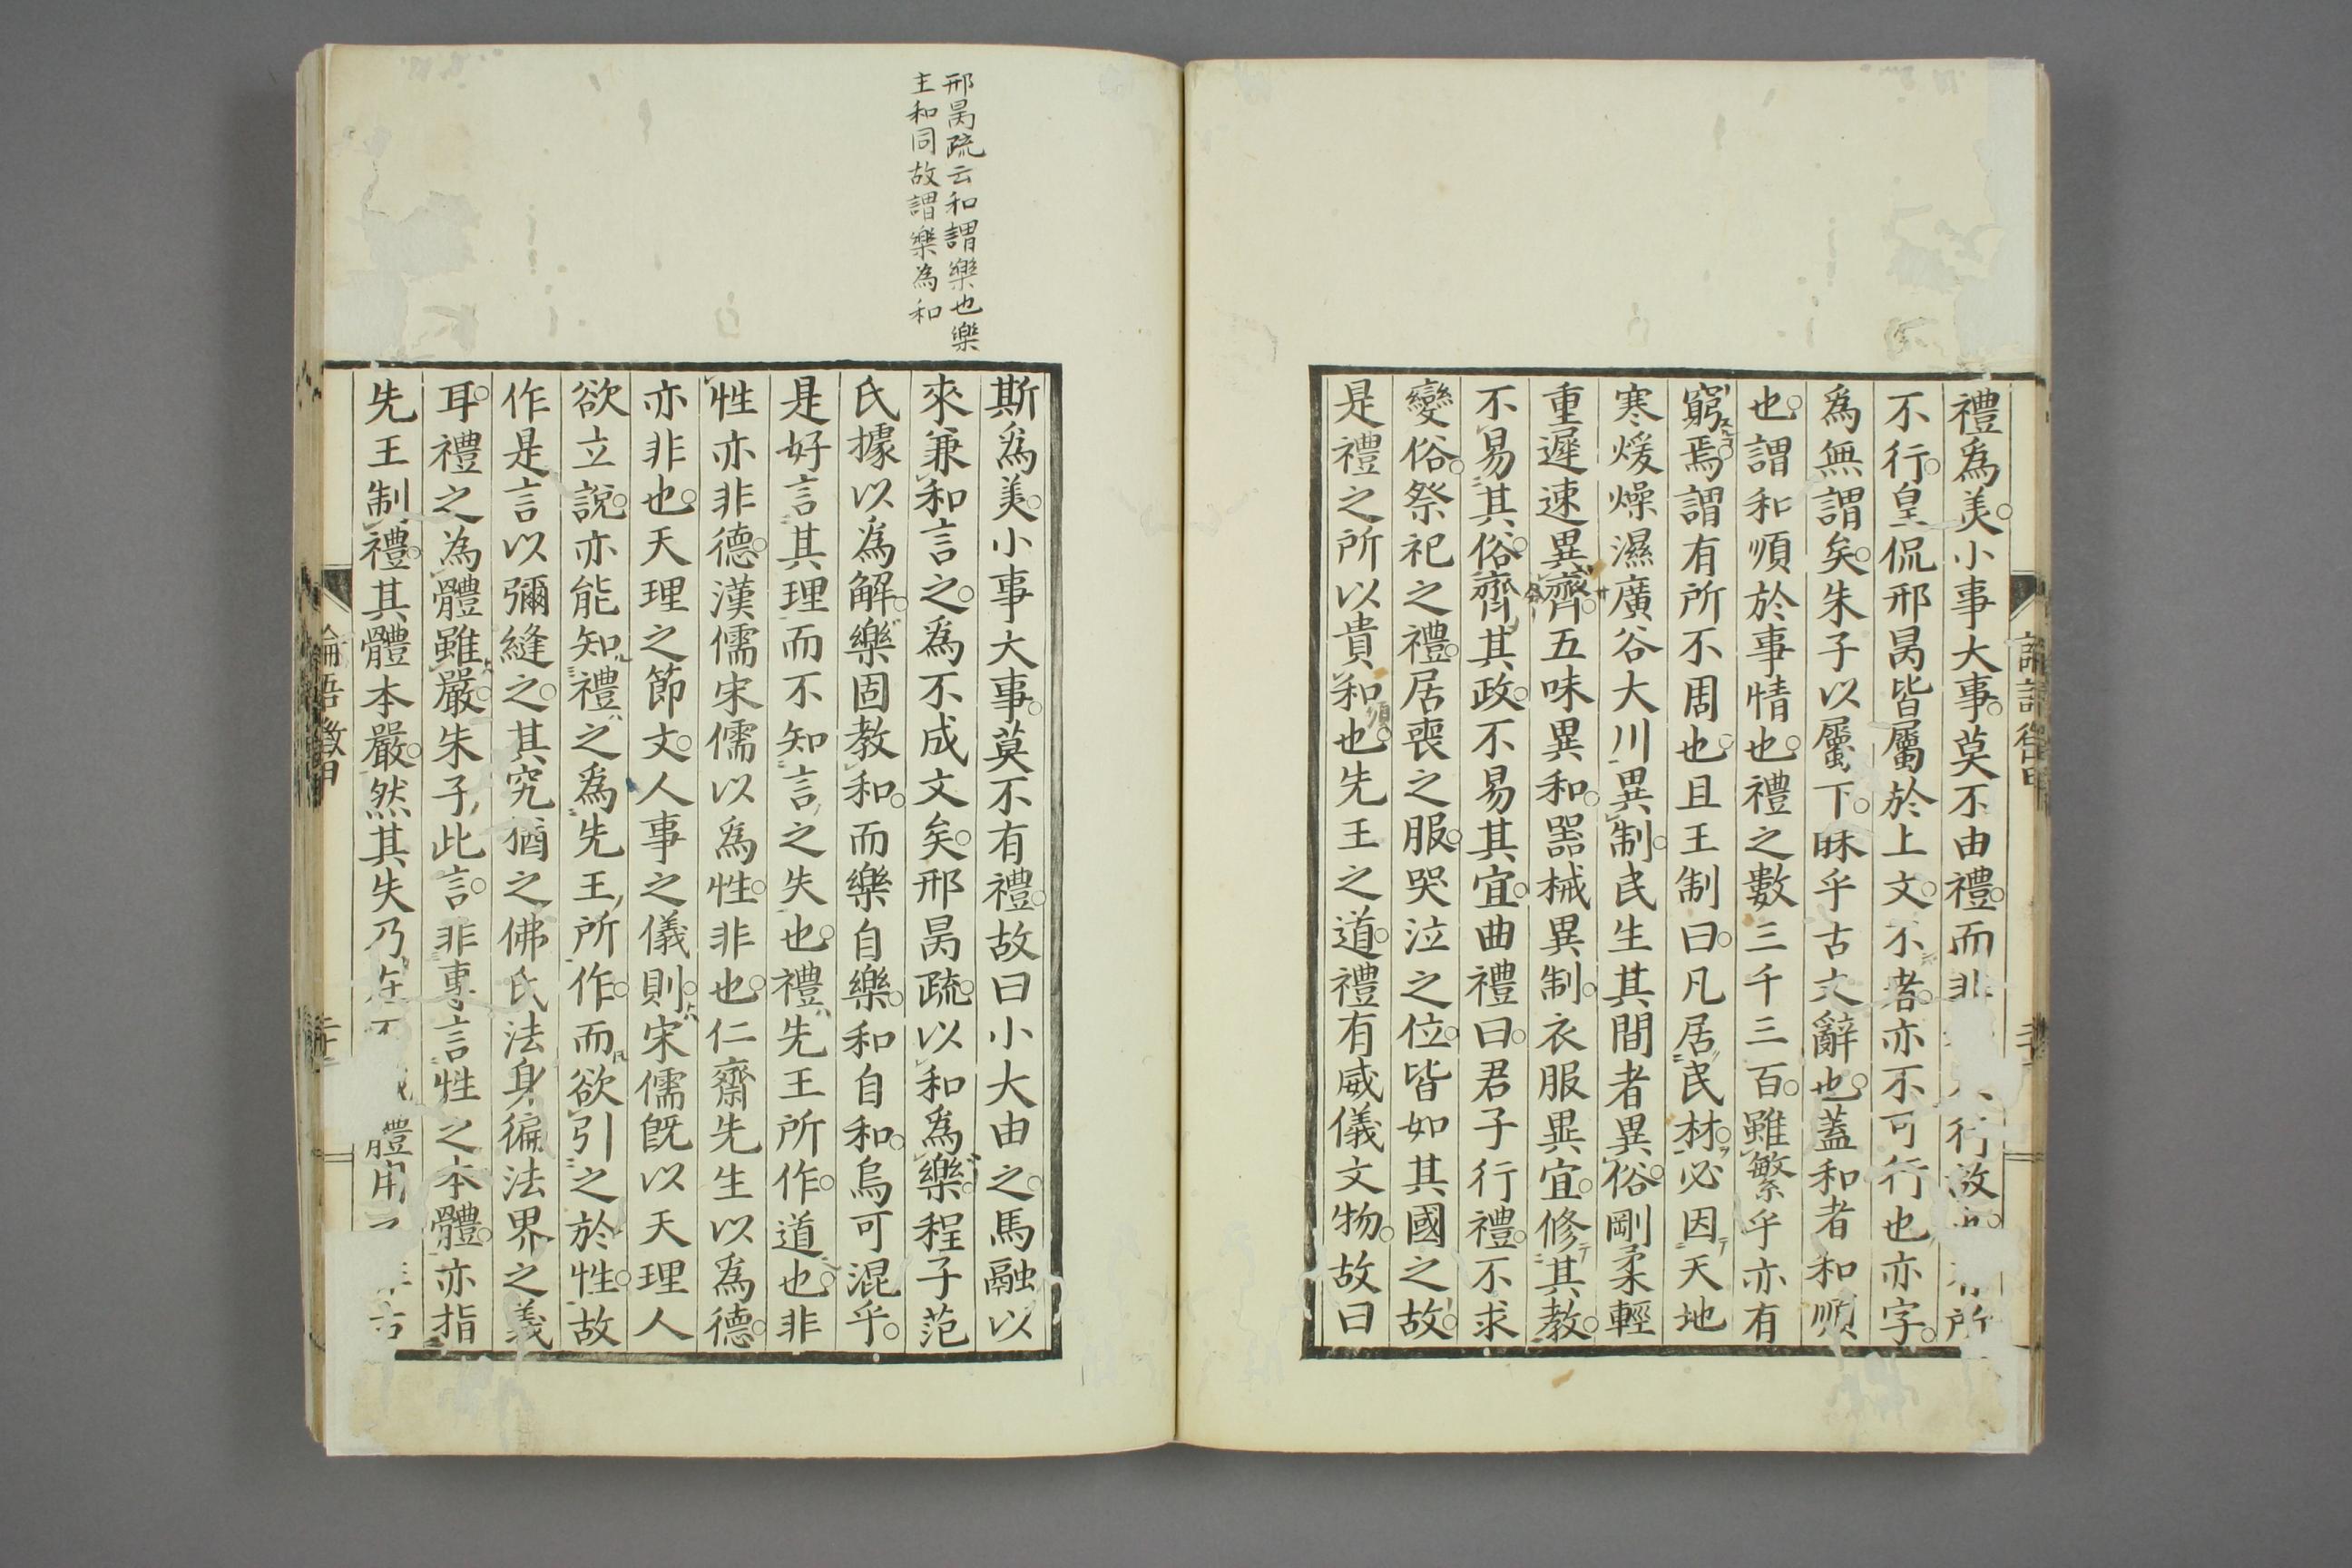 禮爲美。小事大事。莫不由禮。而非行故所
不行。皇侃邢昺皆屬於上文。不者。亦不可行也亦字。
爲無謂矣。朱子以屬下。昧乎古文辭也。蓋和者和順
也。謂和順於事情也。禮之數三千三百。雖繁乎亦有
窮焉。謂有所不周也。且王制曰。凡居民材。必因天地
寒煖燥濕廣谷大川異制。民生其間者異俗。剛柔輕
重遲速異齊。五味異和。器械異制。衣服異宜。修其教。
不易其俗。齊其政。不易其宜。曲禮曰。君子行禮。不求
變俗。祭祀之禮。居喪之服。哭泣之位。皆如其國之故。
是禮之所以貴和也。先王之道。禮有威儀文物。故曰
邢昺疏云和謂樂也樂
主和同故謂樂為和
斯爲美。小事大事。莫不有禮。故曰小大由之。馬融以
來兼和言之。爲不成文矣。邢昺疏。以和爲樂。程子范
氏據以爲解。樂固教和。而樂自樂。和自和。烏可混乎。
是好言其理而不知言之失也。禮先王所作。道也。非
性亦非德。漢儒宋儒以爲性。非也。仁齋先生以爲德。
亦非也。天理之節文。人事之儀則。宋儒旣以天理人
欲立說。亦能知禮之爲先王所作。而欲引之於性。故
作是言以彌縫之。其究猶之佛氏法身徧法界之義
耳。禮之為體雖嚴。朱子此言。非專言性之本體。亦指
先王制禮。其體本嚴。然其失乃在體用
論語徵甲